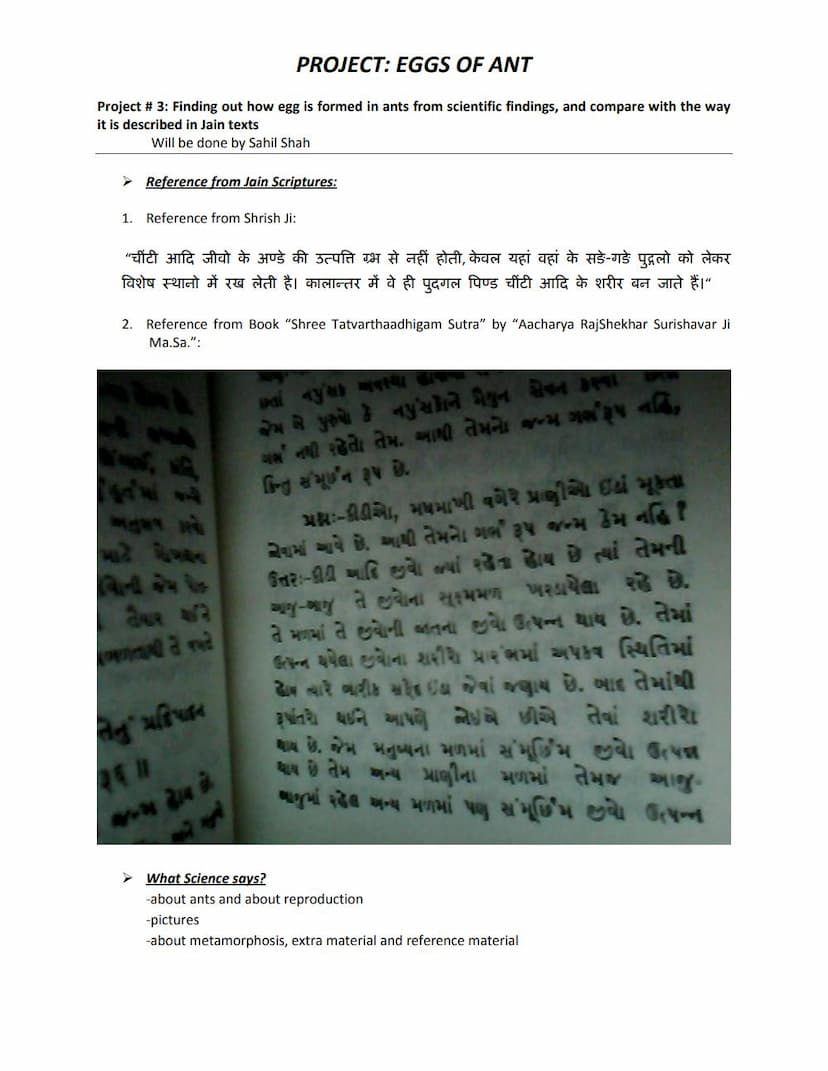 PROJECT: EGGS OF ANT
Project # 3: Finding out how egg is formed in ants from scientific findings, and compare with the way
it is described in Jain texts
Will be done by Sahil Shah
➢ Reference from Jain Scriptures:
1. Reference from Shrish Ji:
“चींटी आदि जीवो के अण्डे की उत्पत्ति ग्भ से नहीं होती, केवल यहां वहां के सङे-गङे पुद्गलो को लेकर
विशेष स्थानो में रख लेती है। कालान्तर में वे ही पुदगल पिण्ड चींटी आदि के शरीर बन जाते हैं।“
2. Reference from Book “Shree Tatvarthaadhigam Sutra” by “Aacharya RajShekhar Surishavar Ji
Ma.Sa.”:
જેમ બે પુરુષો કે નપુંસકોને મૈથુન સેવન કરવા
ગર્ભ નથી રહેતો તેમ. આથી તેમનો જન્મ ગર્ભરૂપ નહિ,
કિન્તુ સંમૂર્છન રૂપ છે.
પ્રશ્નઃ-કીડીઓ, મધમાખી વગેરે પ્રાણીઓ ઈંડાં મૂકતા
જોવામાં આવે છે. આથી તેમનો ગર્ભ રૂપ જન્મ કેમ નહિ ?
ઉત્તરઃ-કીડી આદિ જીવો જ્યાં રહેતા હોય છે ત્યાં તેમની
આજુ-બાજુ તે જીવોના સૂક્ષ્મમળ ખરડાયેલા રહે છે.
તે મળમાં તે જીવોની જાતના જીવો ઉત્પન્ન થાય છે. તેમાં
ઉત્પન્ન થયેલા જીવોના શરીરો પ્રારંભમાં અપકવ સ્થિતિમાં
હોય ત્યારે બારીક સફેદ ઈંડા જેવાં જણાય છે. બાદ તેમાંથી
રૂપાંતરો થઈને આપણે જોઈએ છીએ તેવાં શરીરો
થાય છે. જેમ મનુષ્યના મળમાં સંમૂર્છિમ જીવો ઉત્પન્ન
થાય છે તેમ અન્ય પ્રાણીના મળમાં તેમજ આજુ-
બાજુમાં રહેલ અન્ય મળમાં પણ સંમૂર્છિમ જીવો ઉત્પન્ન
➢ What Science says?
-about ants and about reproduction
-pictures
-about metamorphosis, extra material and reference material